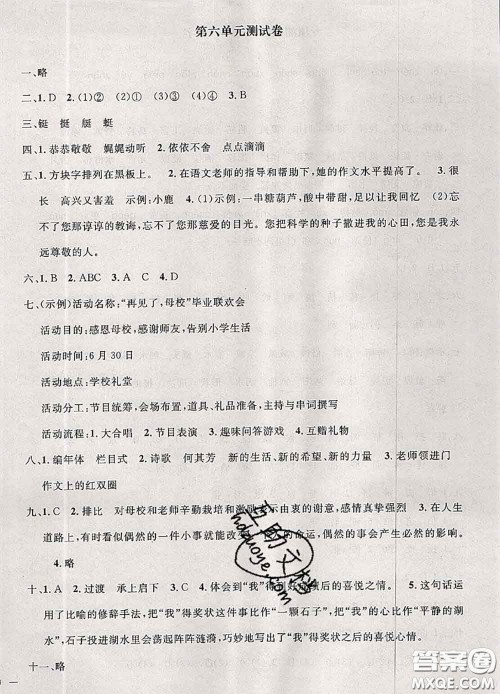 第六单元测试卷
一、略
二、1. D 2. (1)① (2)② (3)④ (4)③ 3. B
三、铤 挺 艇 蜓
四、1. 恭恭敬敬 娓娓动听 2. 依依不舍 点点滴滴
五、1. 方块字排列在黑板上。 2. 在语文老师的指导和帮助下,她的作文水平提高了。 3. 很
长 高兴又害羞 示例:小鹿 4. (1)示例:一串糖葫芦,酸中带甜,足以让我回忆 (2)忘
不了您那谆谆的教诲,忘不了您那慈爱的目光。您把科学的种子撒进我的心田,您是我永
远尊敬的人。
六、1. B 2. ABC 3. A C 4. D
七、(示例)活动名称:“再见了,母校”毕业联欢会
活动目的:感恩母校,感谢师友,告别小学生活
活动时间:6月30日
活动地点:学校礼堂
活动分工:节目统筹,会场布置,道具、礼品准备,主持与串词撰写
活动流程:1. 大合唱 2. 节目表演 3. 趣味问答游戏 4. 互赠礼物
八、1. 编年体 栏目式 2. 诗歌 何其芳 新的、新的希望、新的力量 3. 老师领进门
作文上的红双圈
九、1. C 2. 排比 对母校和老师辛勤栽培和激励表示由衷的谢意,感情真挚强烈 3. 在人生
道路上,有时看似偶然的一件小事就能改变人的命运,偶然的事会产生必然的影响。
4. 略
十、1. A 2. 过渡 承上启下 3. C 4. 体会到了“我”得成绩后的喜悦之情。 5. 这句话运
用了比喻的修辞手法,把“我”得奖状这件事比作“一颗石子”,把“我”的心比作“平静的湖
水”,石子投进湖水里会荡起阵阵涟漪,巧妙地写出了“我”得奖状后的喜悦心情。
十一、略
互助文档
hdduoye.com
答案圈
MXQE.COM